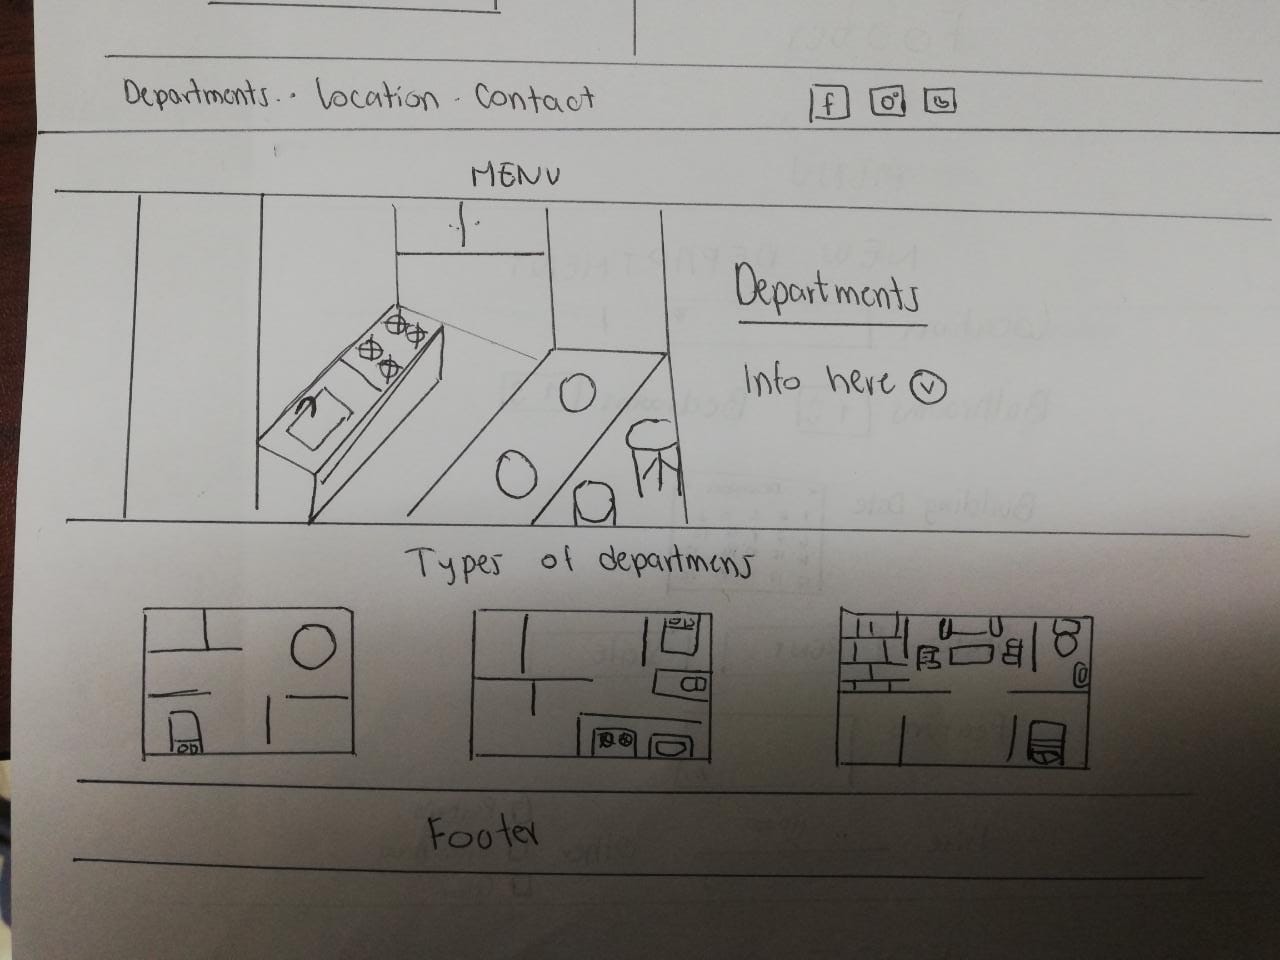 Departments. . Location . Contact
f
MENU
Departments
Info here
Types of departmens
Footer